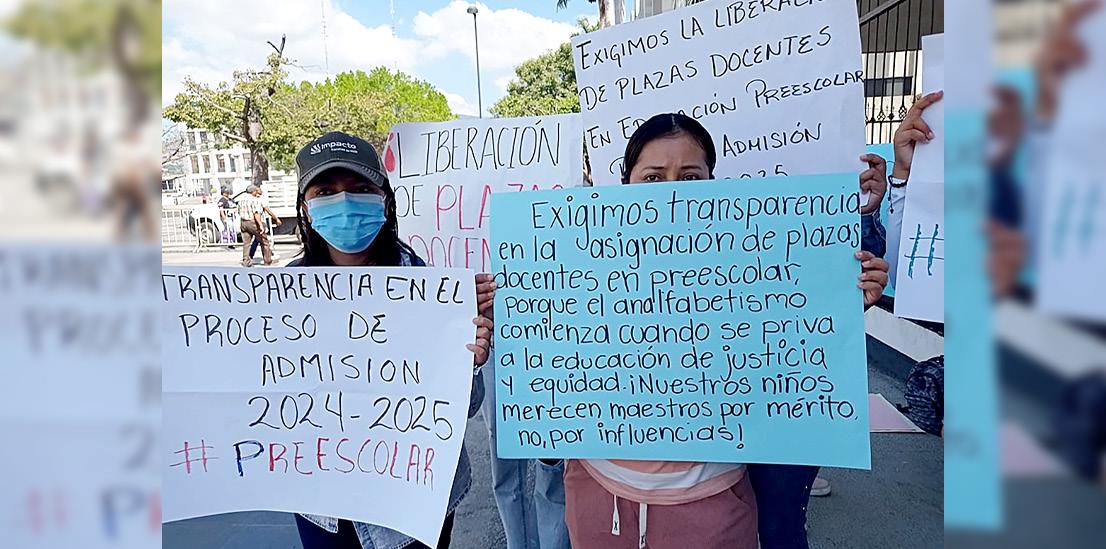 EXIGIMOS LA
DE PLAZAS DOCENTES
EN EDUCACIÓN PREESCOLAR
ADMISIÓN
LIBERACIÓN
DE
impacto
Exigimos transparencia
en la asignación de plazas
docentes en preescolar,
porque el analfabetismo
comienza cuando se priva
a la educación de justicia
y equidad. ¡Nuestros niños
merecen maestros por mérito,
no, por influencias!
TRANSPARENCIA EN EL
PROCESO DE
ADMISION
2024-2025
#PREESCOLAR
#